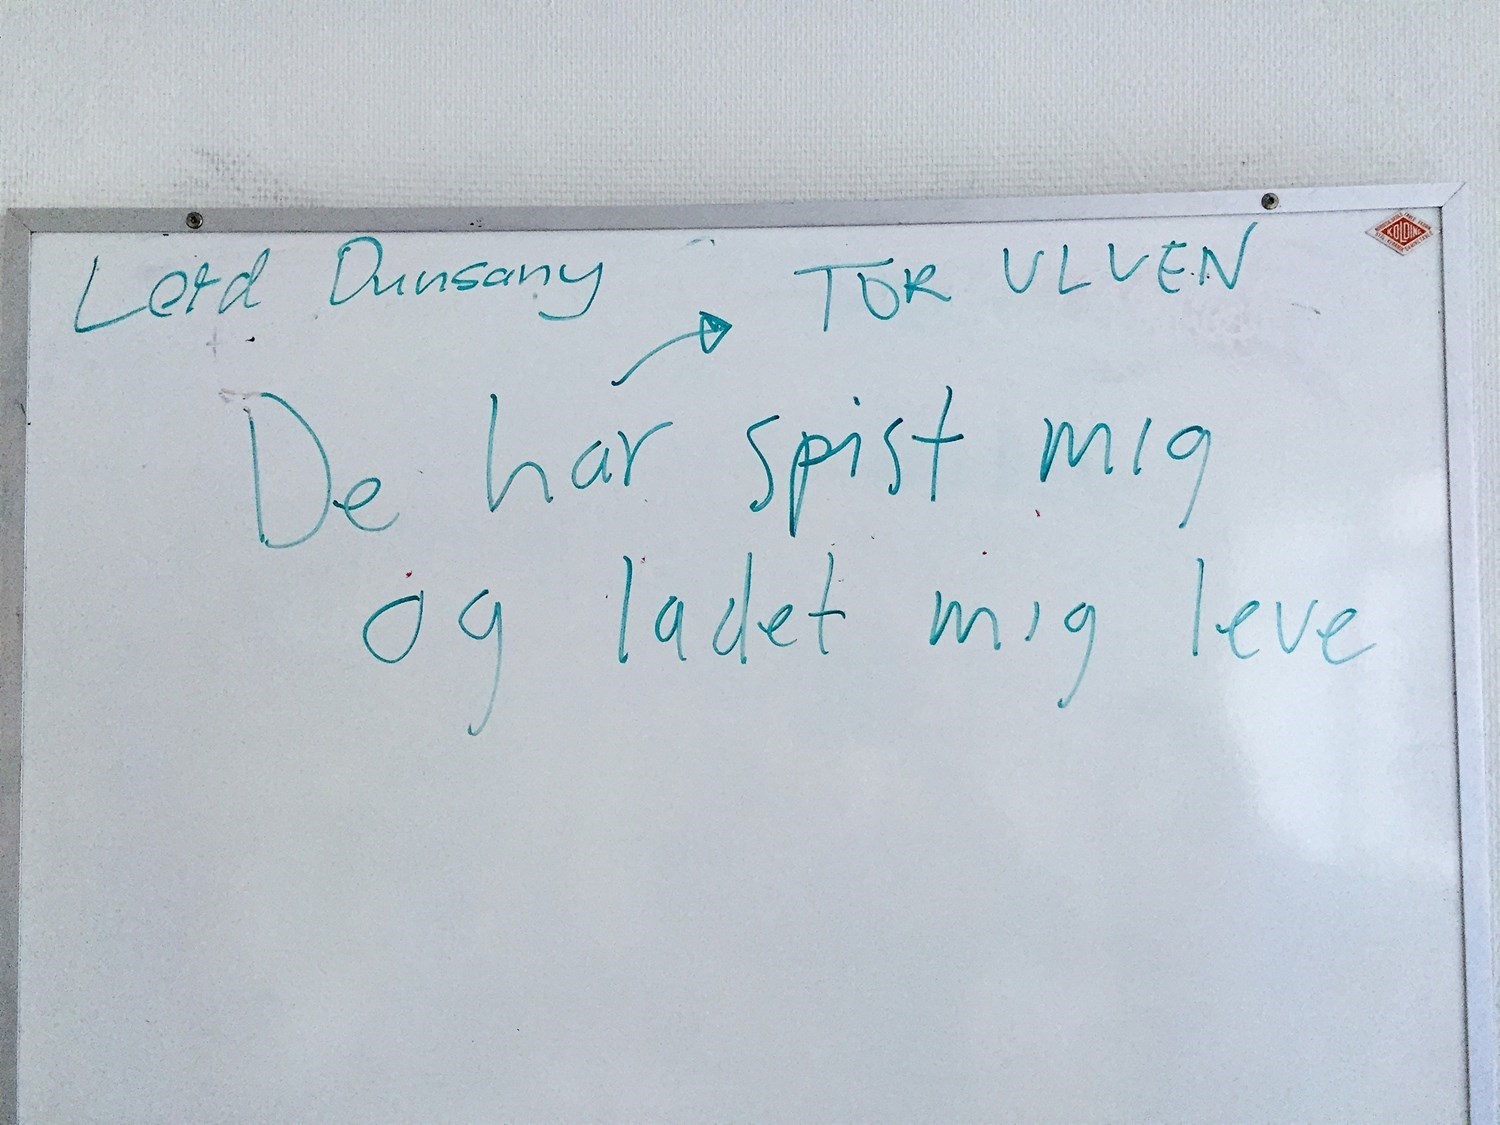 Lord Dunsany
TOR ULVEN
De har spist mig
og ladet mig leve